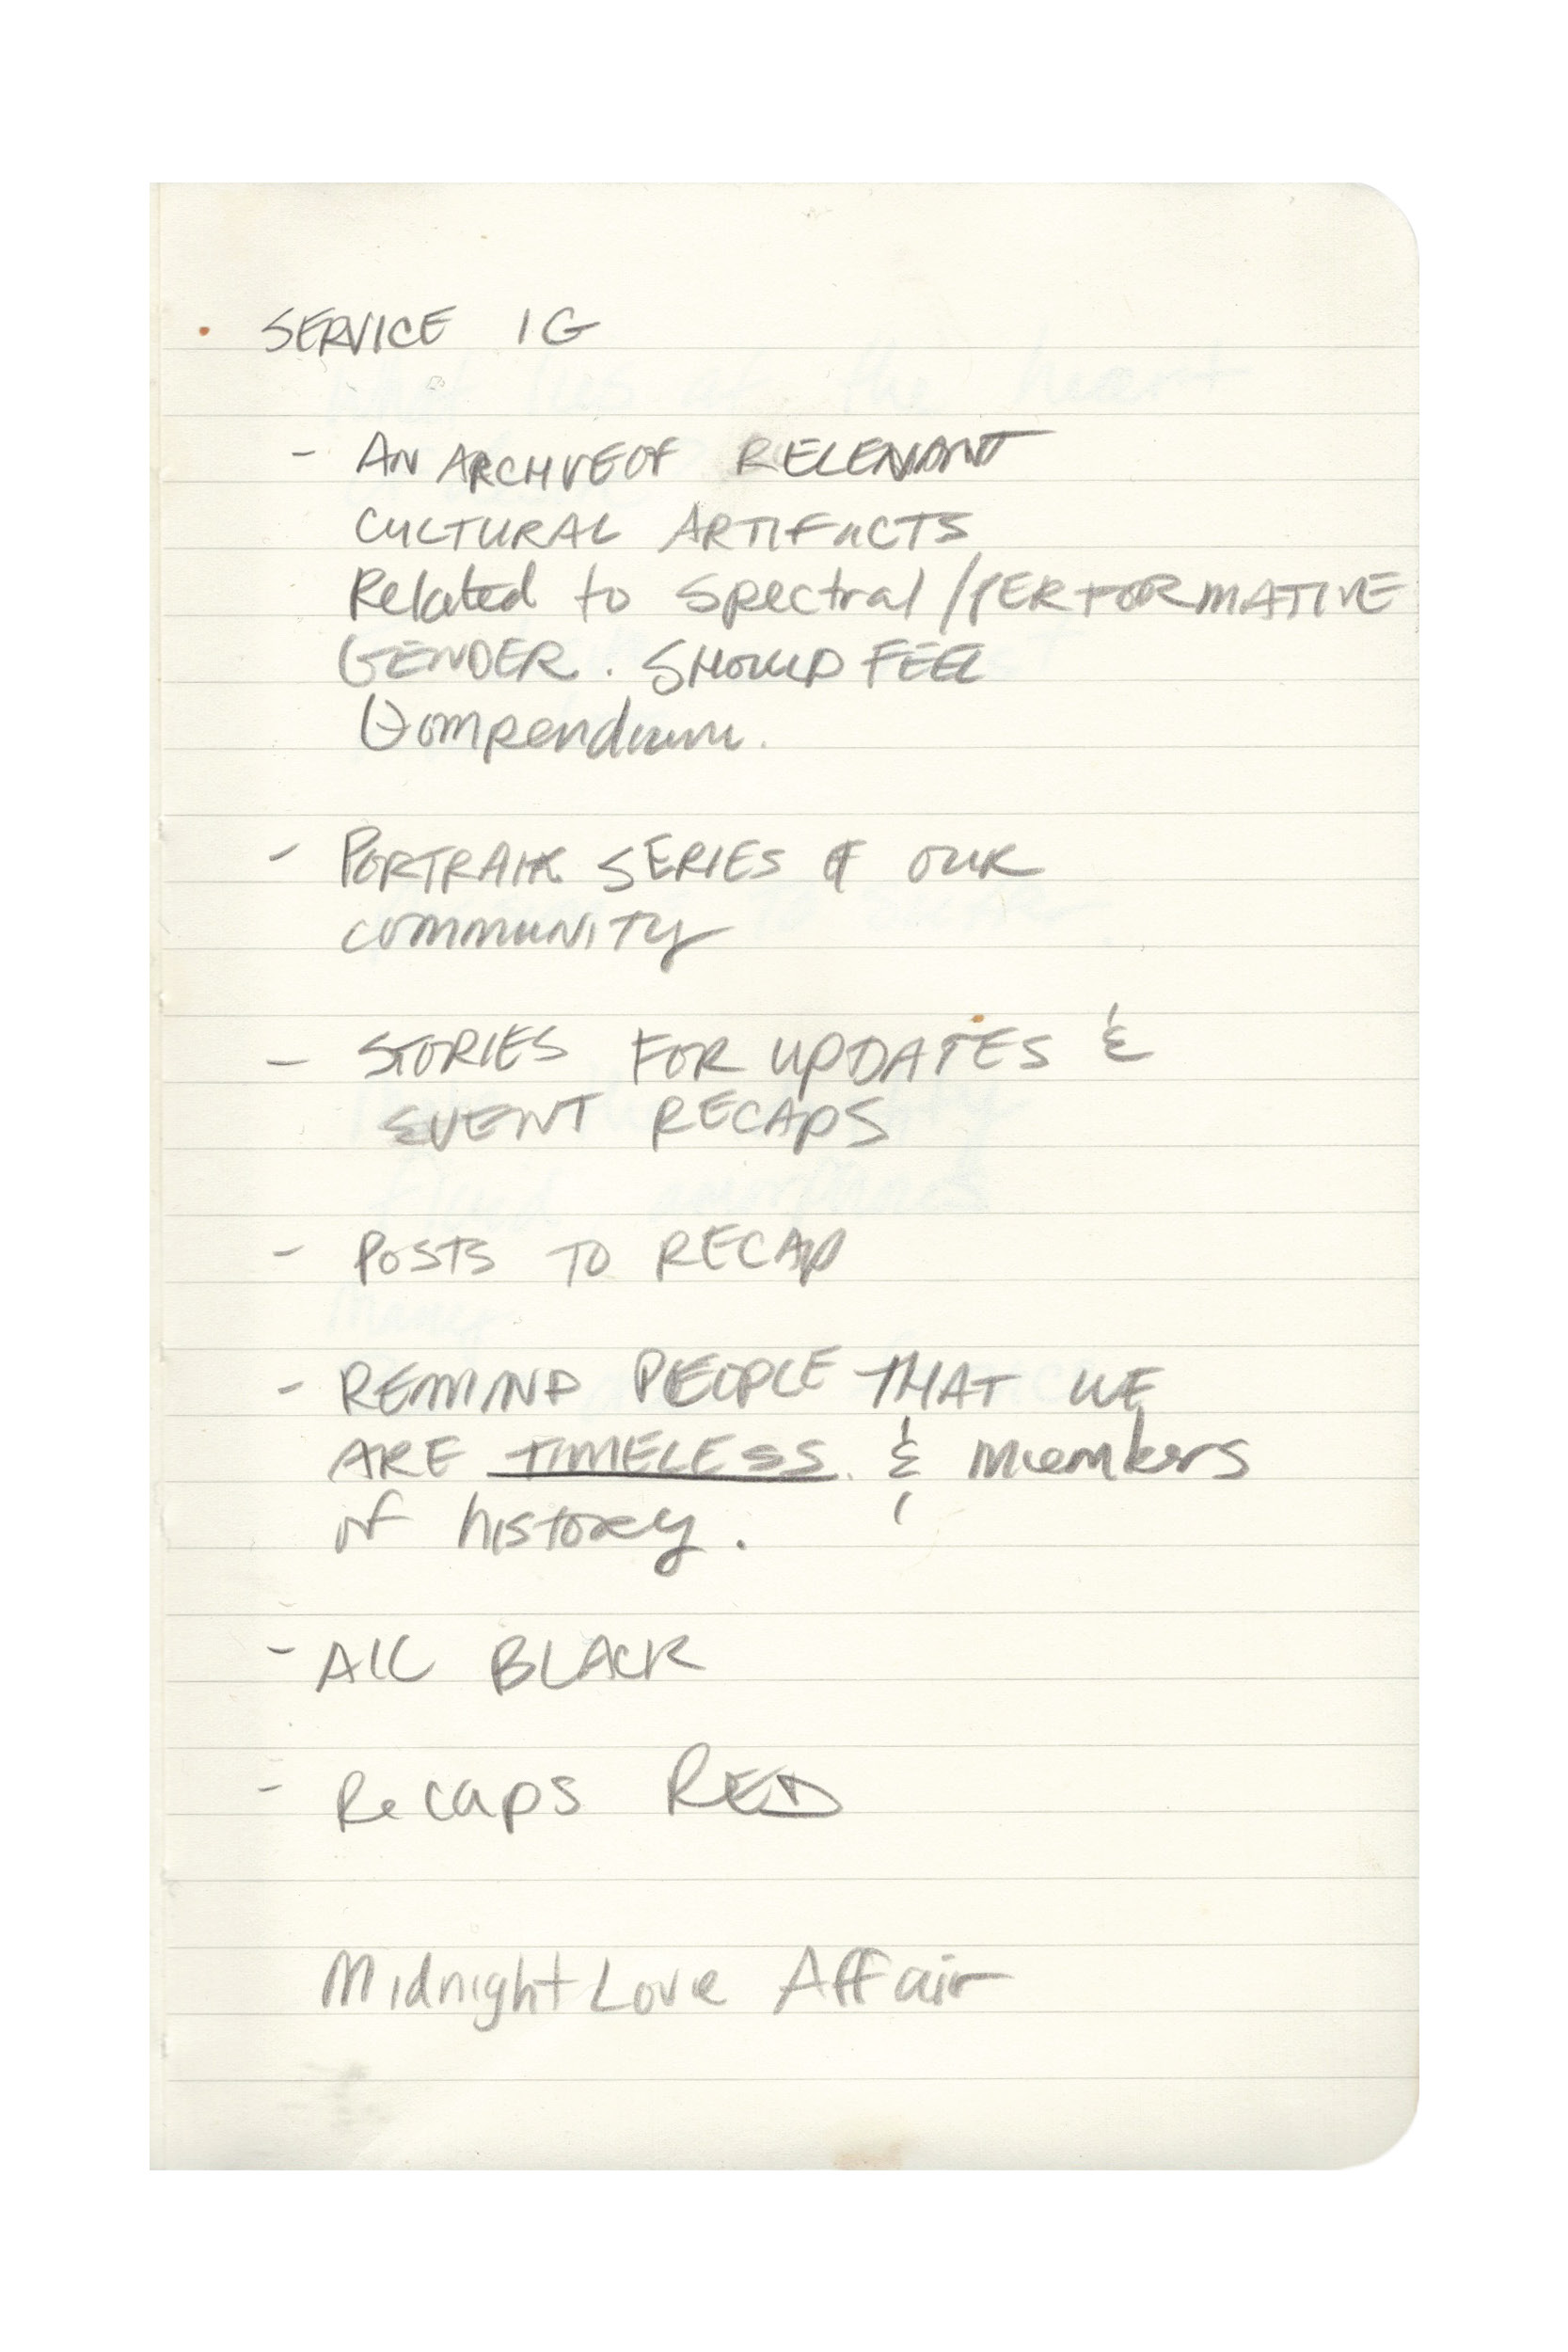 SERVICE IG
- AN ARCHIVE OF RELEVANT
CULTURAL ARTIFACTS
Related to Spectral / PERFORMATIVE
GENDER. SHOULD FEEL
Compendium.
- PORTRAIT SERIES of OUR
COMMUNITY
- STORIES FOR UPDATES &
EVENT RECAPS
- POSTS TO RECAP
- REMIND PEOPLE THAT WE
ARE TIMELESS & members
of history.
- ALL BLACK
- Recaps RED
Midnight Love Affair